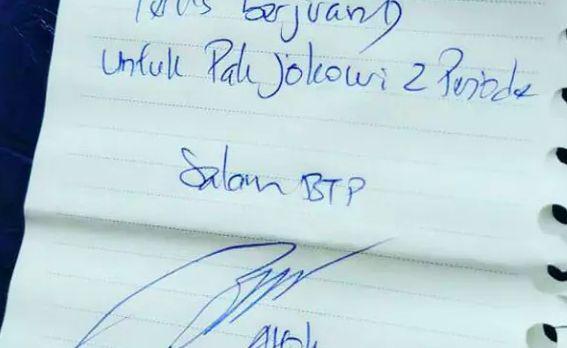 Terus berjuang
untuk Pak jokowi 2 Periode
Salam BTP
Ahok